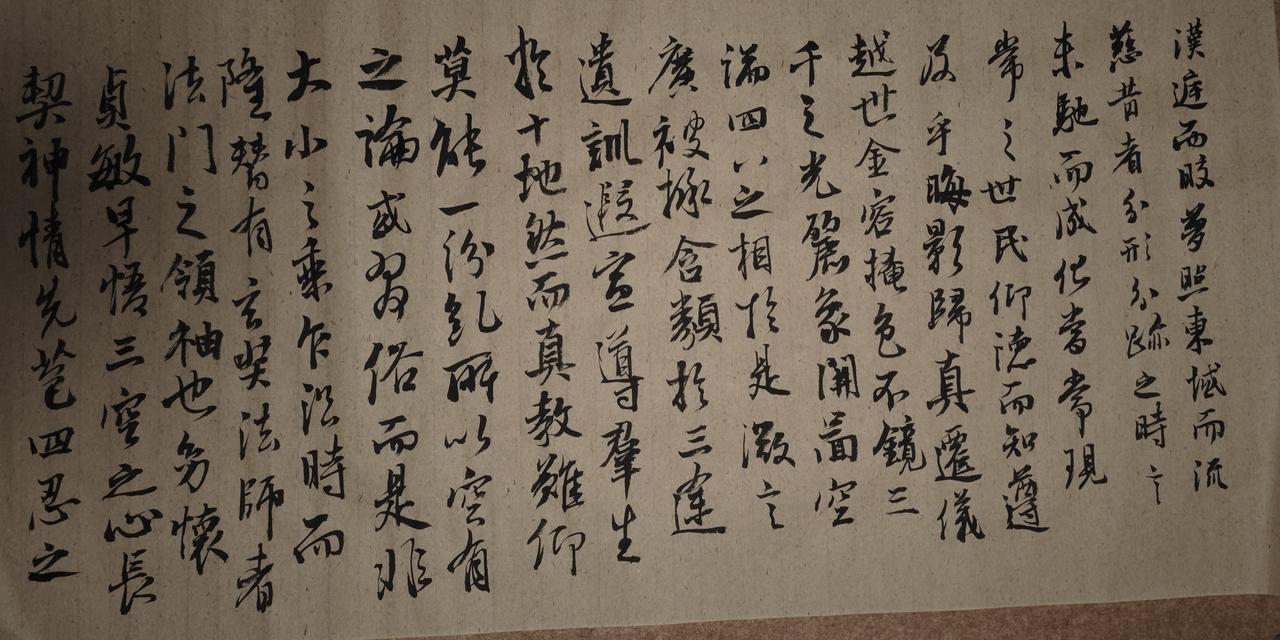 漢庭而皎夢照東域而流
慈昔者分形分跡之時言
未馳而成化當常現
常之世民仰德而知遵
及乎晦影歸真遷儀
越世金容掩色不鏡三
千之光麗象開圖空
端四八之相於是微言
廣被拯含類於三途
遺訓遐宣導群生
於十地然而真教難仰
莫能一
之論或習俗而是非
大小之乘乍沿時而
隆替有玄奘法師者
法門之領袖也幼懷
貞敏早悟三空之心長
契神情先苞四忍之